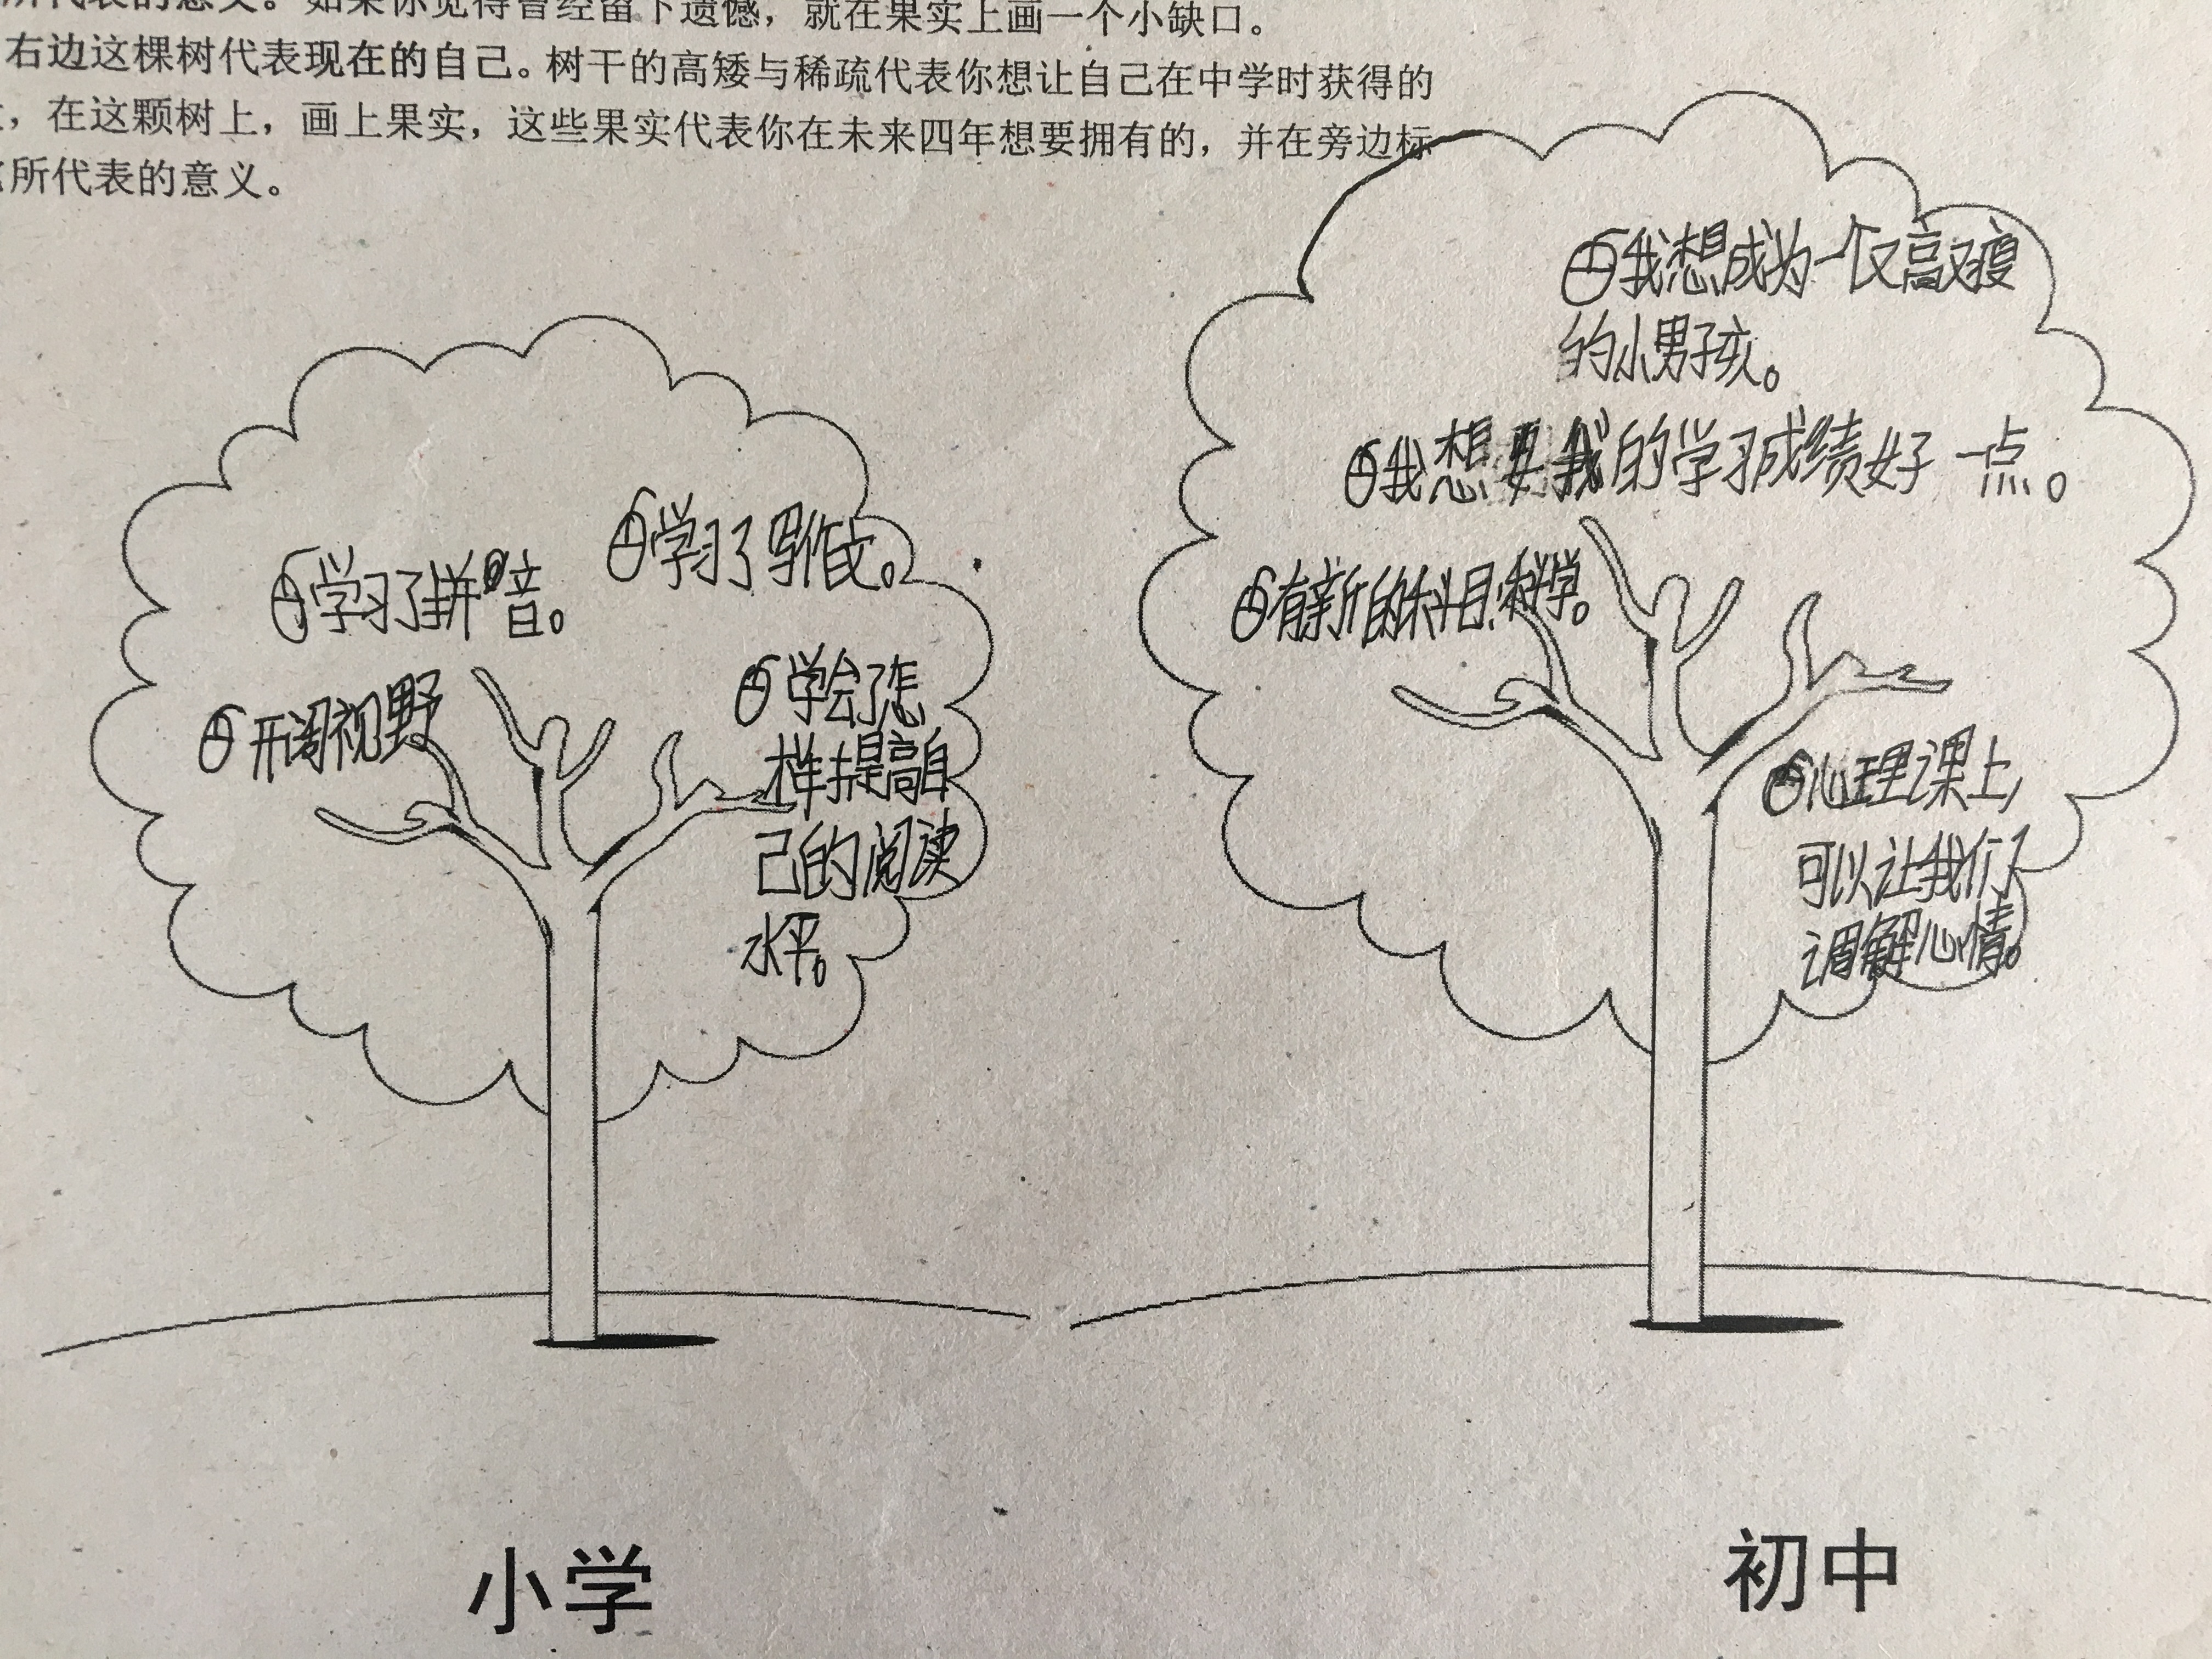 所代表的意义。如果你觉得曾经留下遗憾，就在果实上画一个小缺口。
右边这棵树代表现在的自己。树干的高矮与稀疏代表你想让自己在中学时获得的
，在这颗树上，画上果实，这些果实代表你在未来四年想要拥有的，并在旁边标
所代表的意义。
学习了拼音。
学习了写作文。
开阔视野
学会了怎
样提高自
己的阅读
水平。
我想成为一个又高又瘦
的小男孩。
我想要我的学习成绩好一点。
有新的科目:科学。
心理课上,
可以让我们
调解心情。
小学
初中